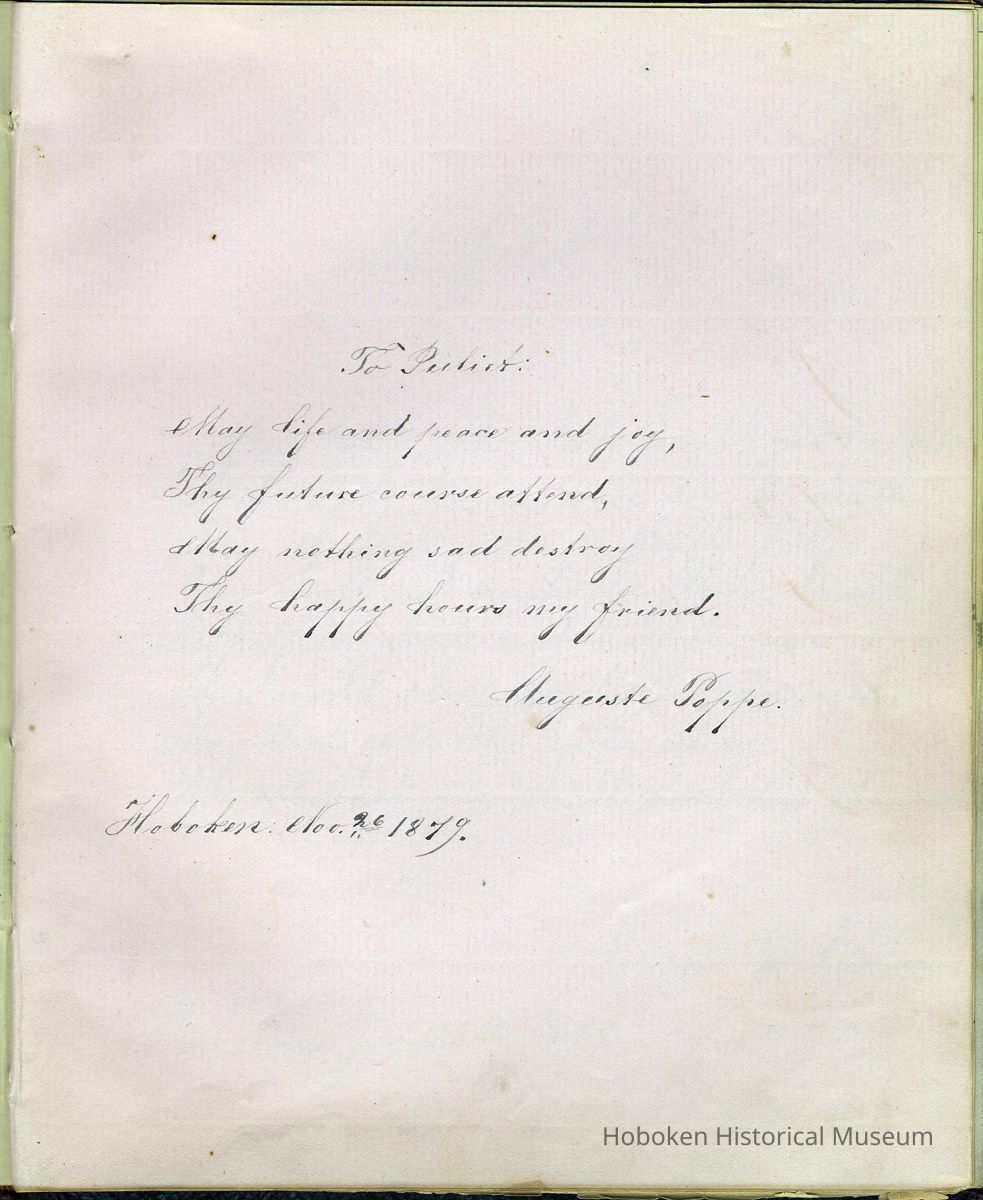 To Juliet:
May life and peace and joy,
Thy future course attend,
May nothing sad destroy
Thy happy hours my friend.
Auguste Poppe.
Hoboken. Nov. 26 1879.
Hoboken Historical Museum